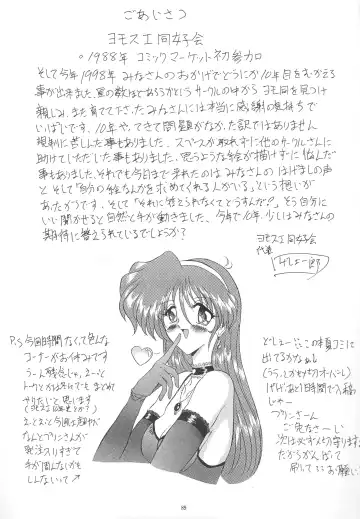 ごあいさつ
ヨモスエ同好会
。1988年 コミックマーケット初参加
そして今年1998年 みなさんのおかげでどうにか10年目をむかえる
事が出来ました、星の数ほどあるかというサークルの中からヨモ同を見つけ
親しみ、また育てて下さったみなさんには本当に感謝の気持ちで
いっぱいです、10年やってきて問題がなかった訳ではありません
規制に苦しんだ事もありました、スペースが取れずに他のサークルさんに
助けていただいた事もありました、思うような絵が描けずに悩んだ
事もありました、それでも今日まで来れたのは みなさんの はげましの声
と そして「自分の絵なんかを求めてくれる人がいる」という想いが
あったからです、そして「それに答えられなくてどうすんだ?」そう自分に
いい聞かせると自然と手が動きました、今年で10年、少しはみなさんの
期待に答えられているでしょうか?
ヨモスエ同好会
代表
P.S 今回時間がなくて色んな
コーナーがお休みです
うーん残念じゃ、
やりたいと思います
なんとプリンさんが
手が回んないかも
しんないして
どしょー、この横コミに
出てるかなぁ
あげたあと1時間で入稿
じゃー
プリンさーん
ご免なさーい
次は必ずメ切守ります
だからがんばって
刷って お願い
85